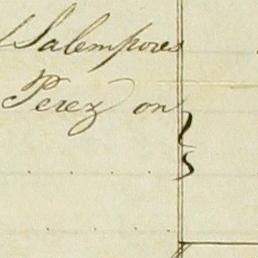 Salempores
Perez on